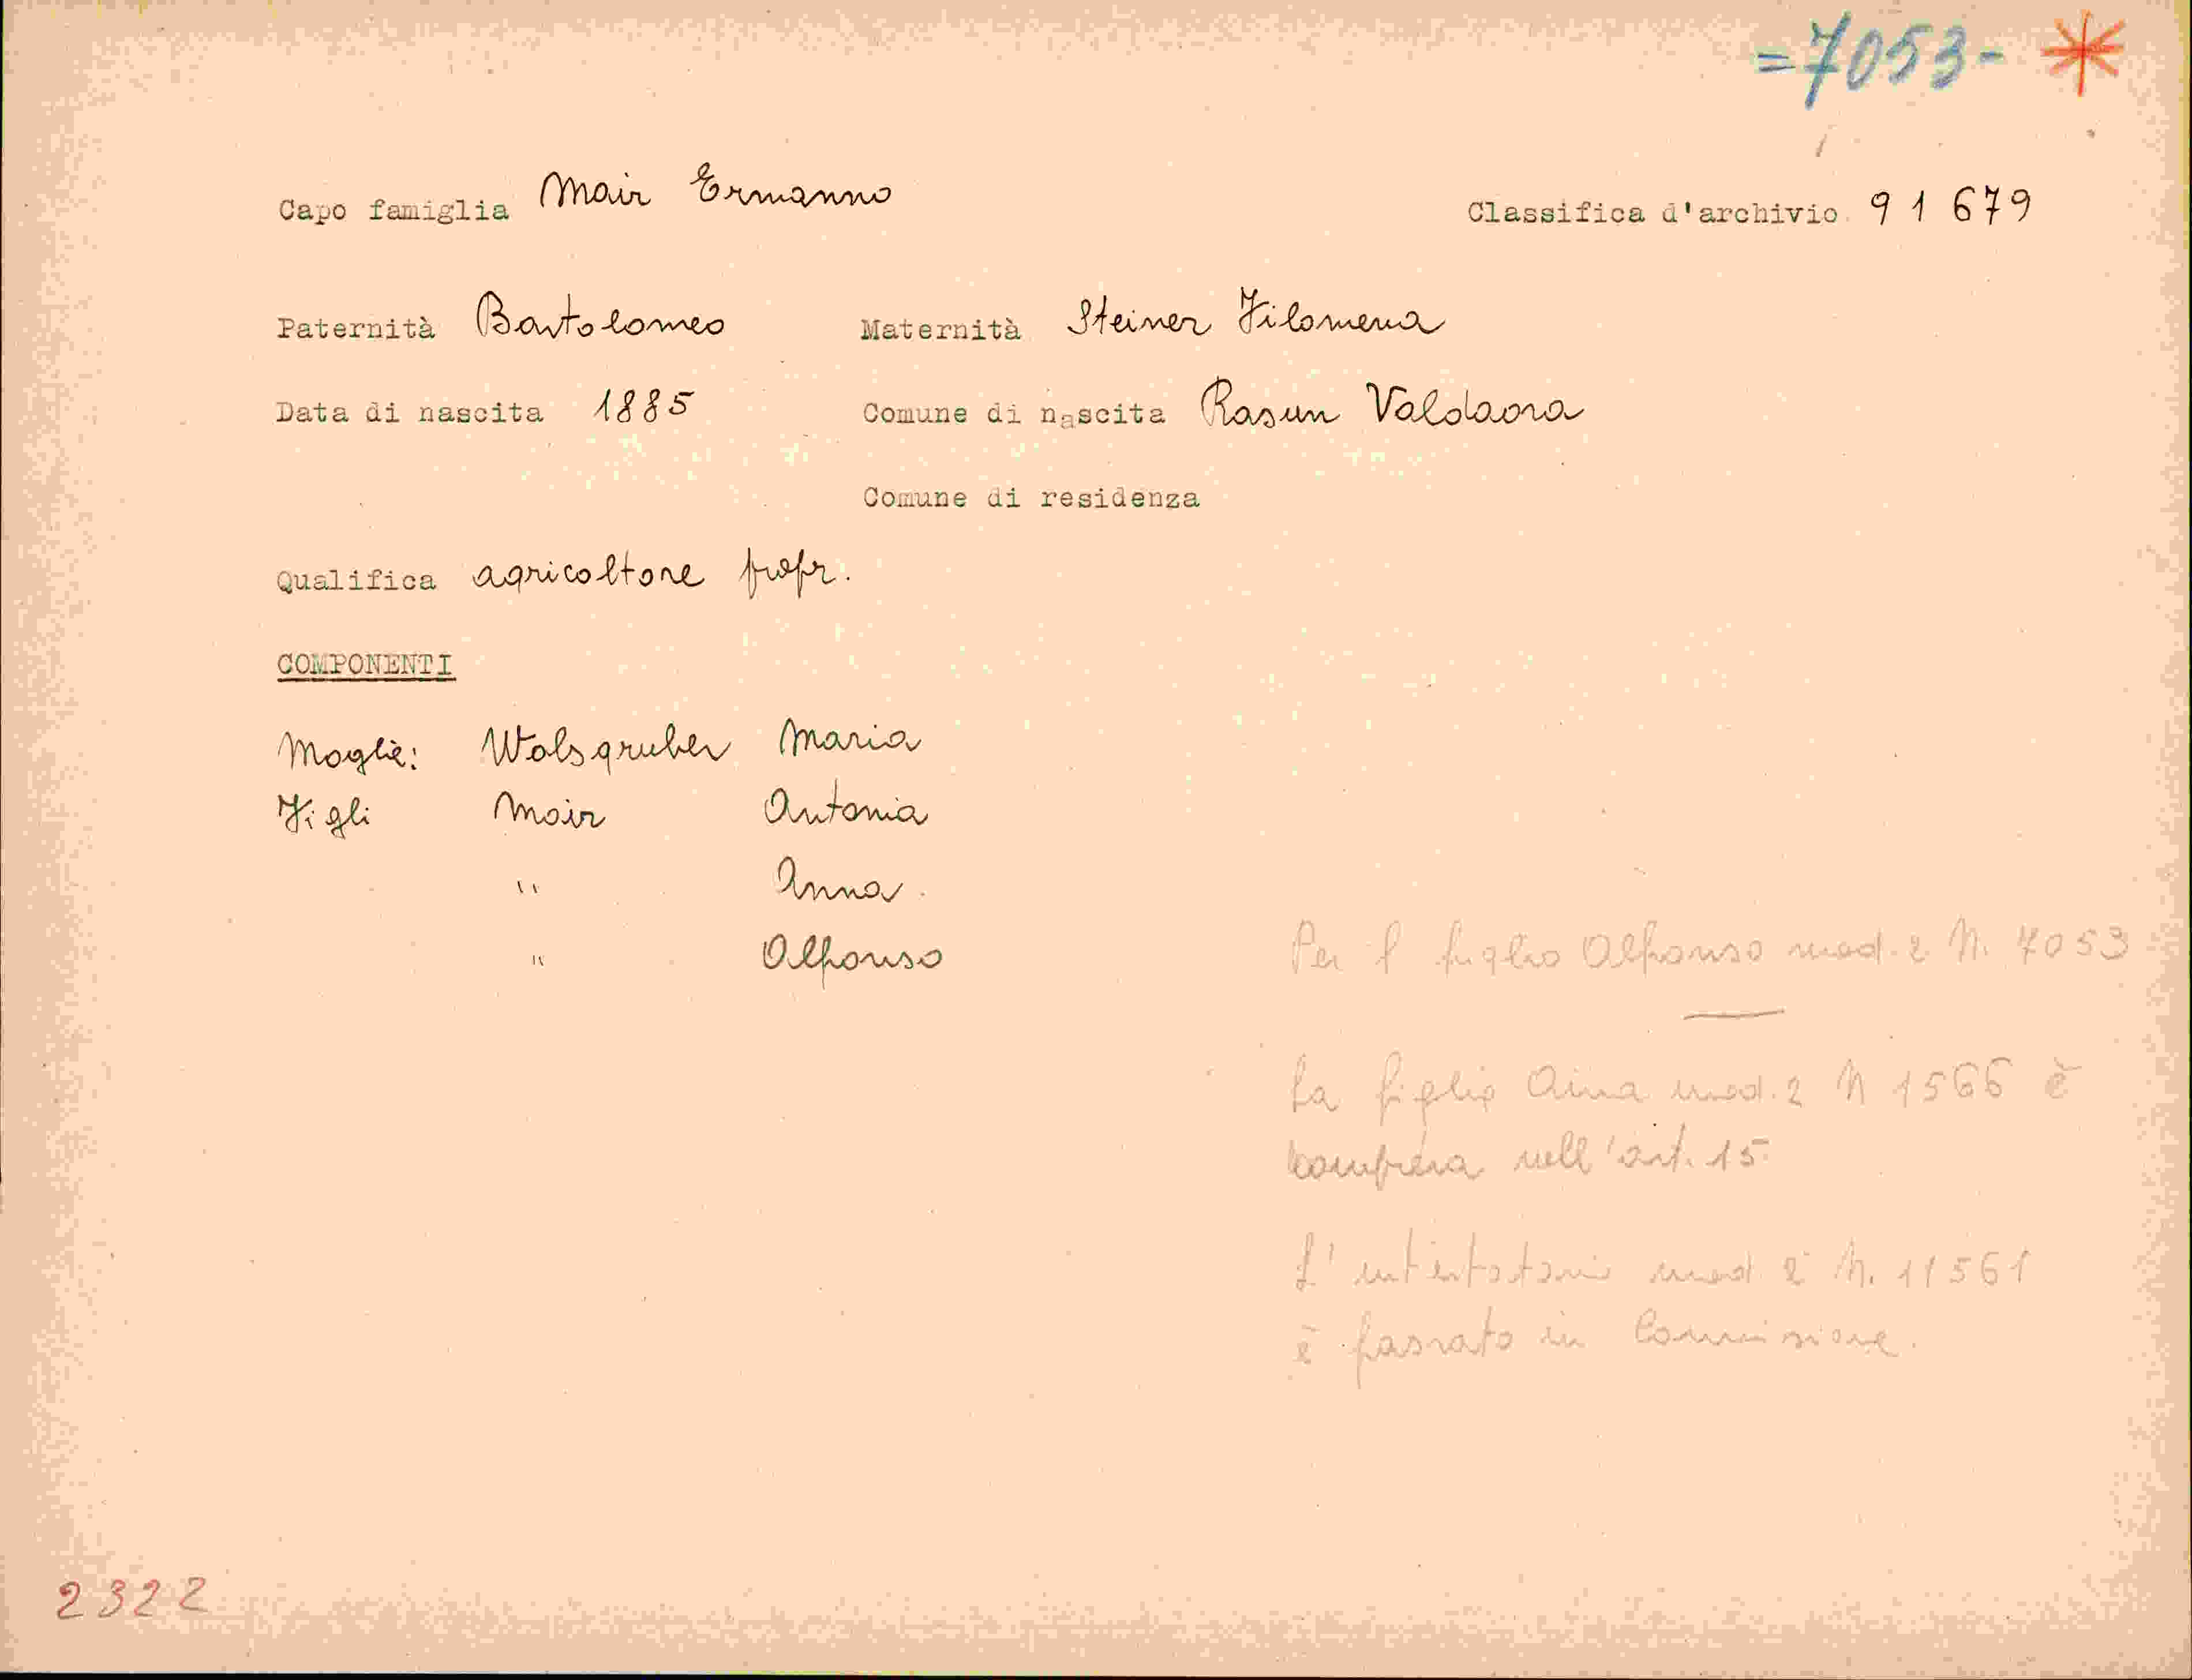 =7053- *
Capo famiglia Mair Ermanno Classifica d'archivio 91679
Paternità Bartolomeo Maternità Steiner Filomena
Data di nascita 1885 Comune di nascita Rasun Valdaora
Comune di residenza
Qualifica agricoltore propr.
COMPONENTI
Moglie: Wolsgruber Maria
Figli Mair Antonia
" Anna
" Alfonso
Per il figlio Alfonso mod. 2 N. 7053
La figlia Anna mod. 2 N 1566 è
compresa nell'art. 15
L'intestatario mod 2 N. 11561
è passato in Commissione.
2322